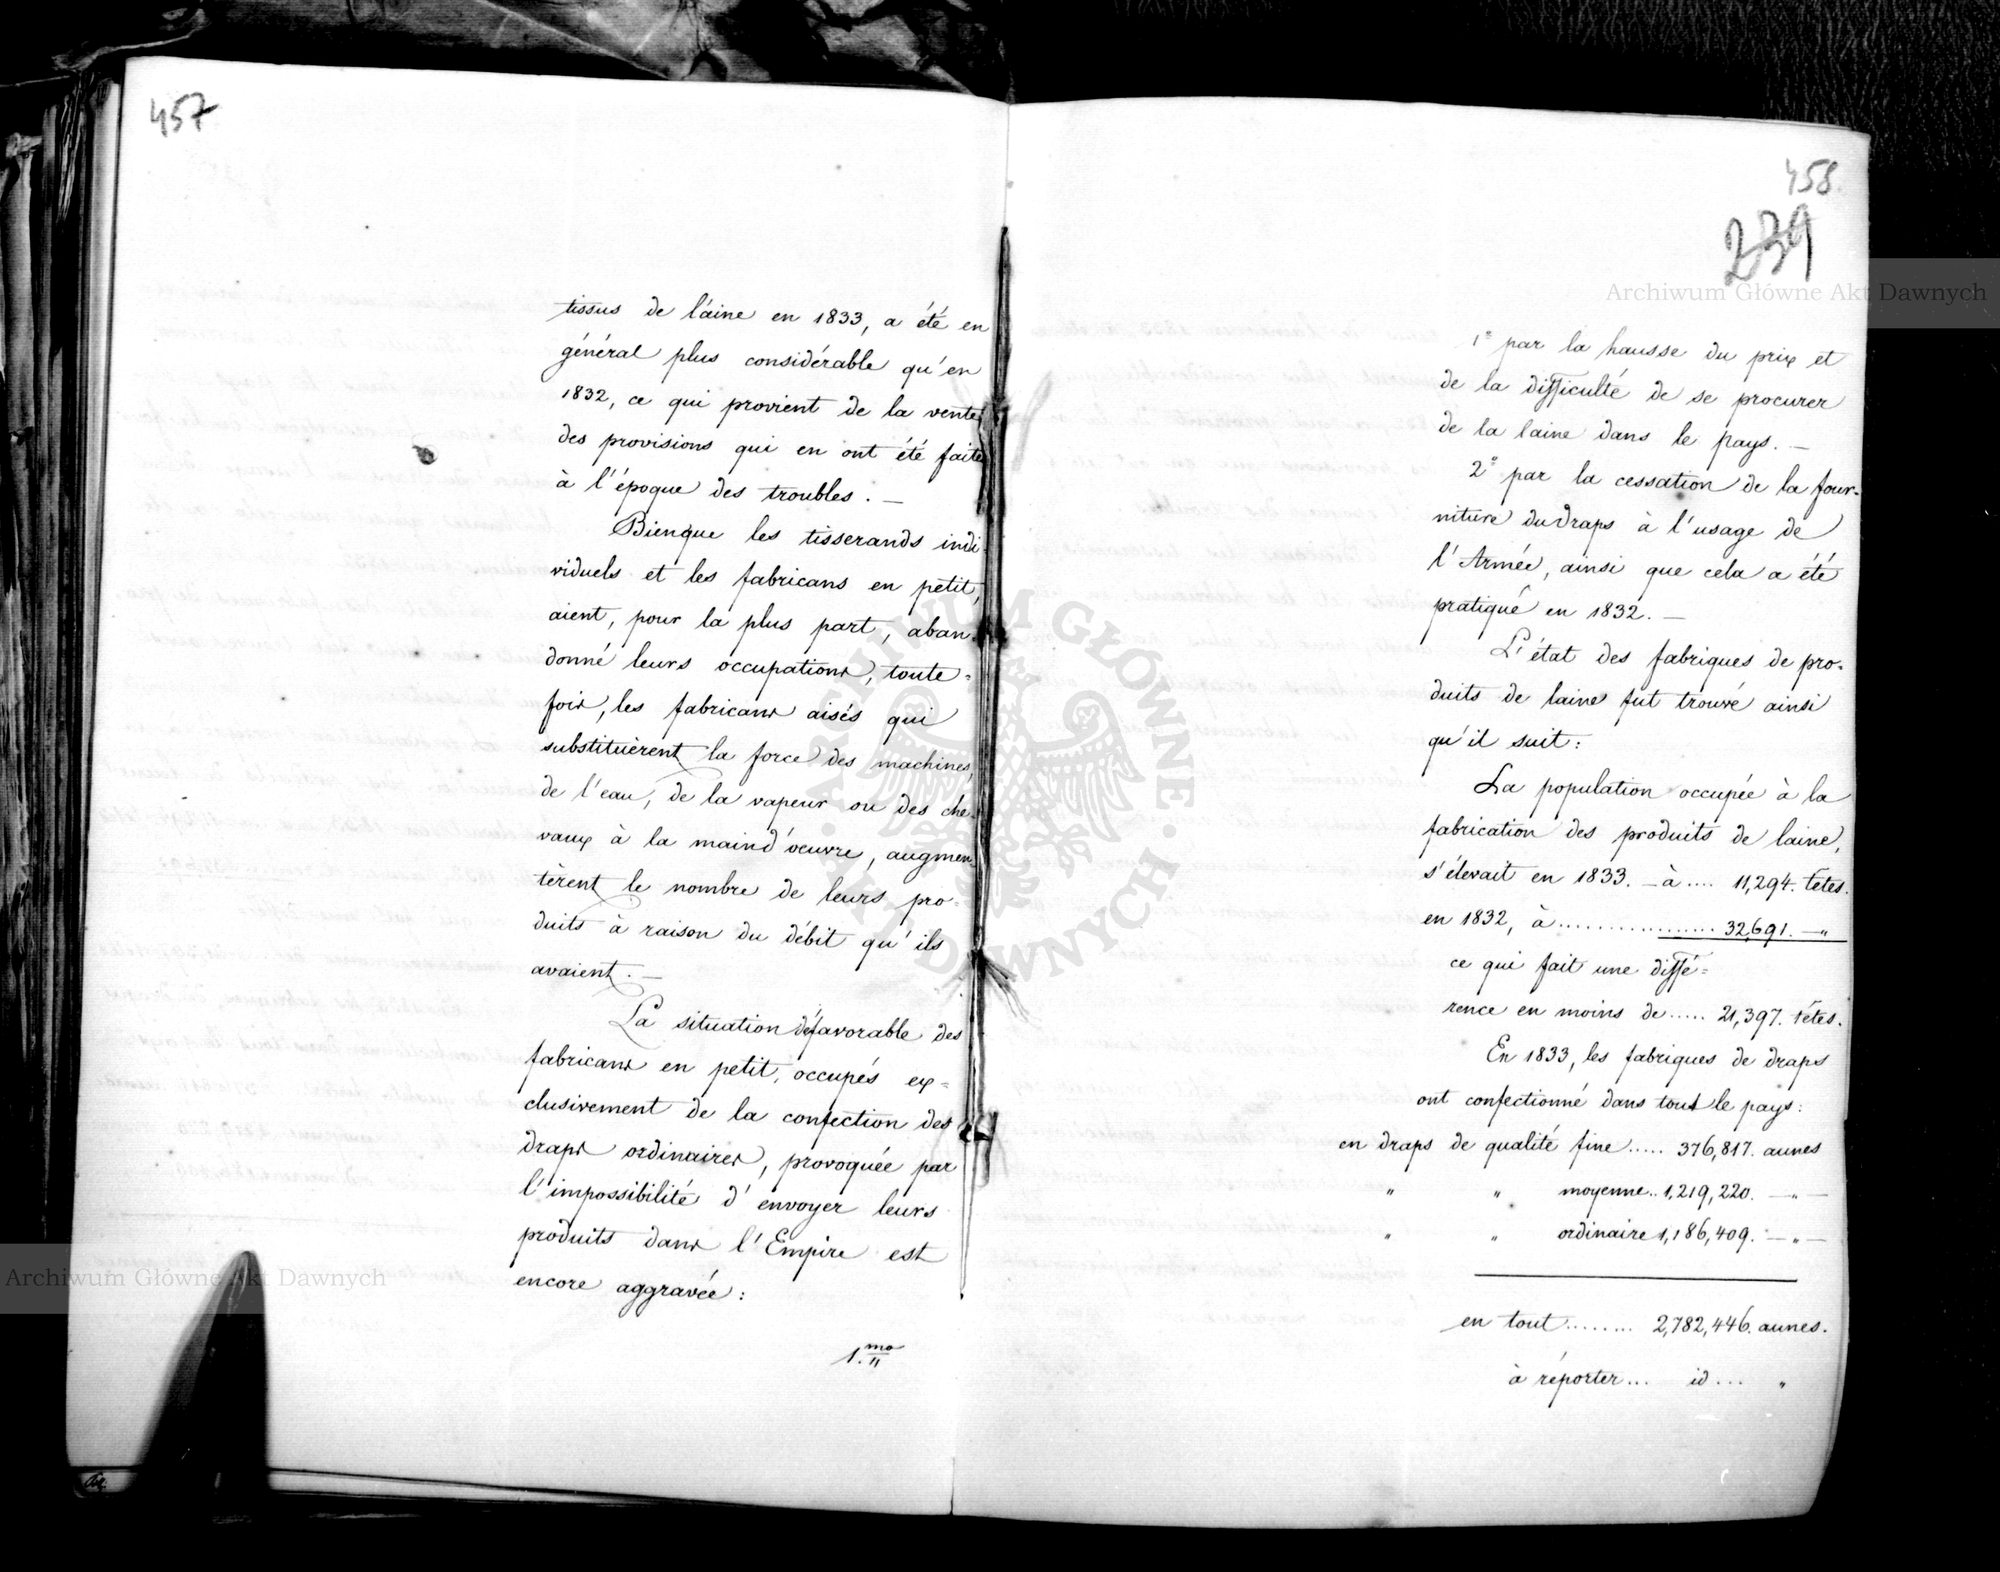 457
tissus de láine en 1833, a été en
général plus considérable qu'en
1832, ce qui provient de la vente
des provisions qui en ont été faite
à l'époque des troubles. —
Bienque les tisserands indi
viduels et les fabricans en petit,
aient, pour la plus part, aban-
donné leurs occupations, toute=
fois, les fabricans aisés qui
substituèrent la force des machines,
de l'eau, de la vapeur ou des che-
vaux à la maind'oeuvre, augmen-
tèrent le nombre de leurs pro=
duits à raison du débit qu'ils
avaient. —
La situation défavorable des
fabricans en petit, occupés ex=
clusivement de la confection des
draps ordinaires, provoquée par
l'impossibilité d'envoyer leurs
produits dans l'Empire est
encore aggravée:
1.mo
458
239
1° par la hausse du prix et
de la difficulté de se procurer
de la laine dans le pays. —
2° par la cessation de la four-
niture du draps à l'usage de
l'Armée, ainsi que cela a été
pratiqué en 1832. —
L'état des fabriques de pro-
duits de laine fut trouvé ainsi
qu'il suit:
La population occupée à la
fabrication des produits de laine,
s'élevait en 1833. — à .... 11,294. têtes.
en 1832, à .................. 32,691. —"
ce qui fait une diffé=
rence en moins de ..... 21,397. têtes.
En 1833, les fabriques de draps
ont confectionné dans tout le pays:
en draps de qualité fine ..... 376,817. aunes
" " moyenne .. 1,219,220. —"—
" " ordinaire 1,186,409. —"—
en tout ........ 2,782,446. aunes.
à réporter ... id ... "
Archiwum Główne Akt Dawnych
Archiwum Główne Akt Dawnych
ARCHIWUM GŁÓWNE AKT DAWNYCH